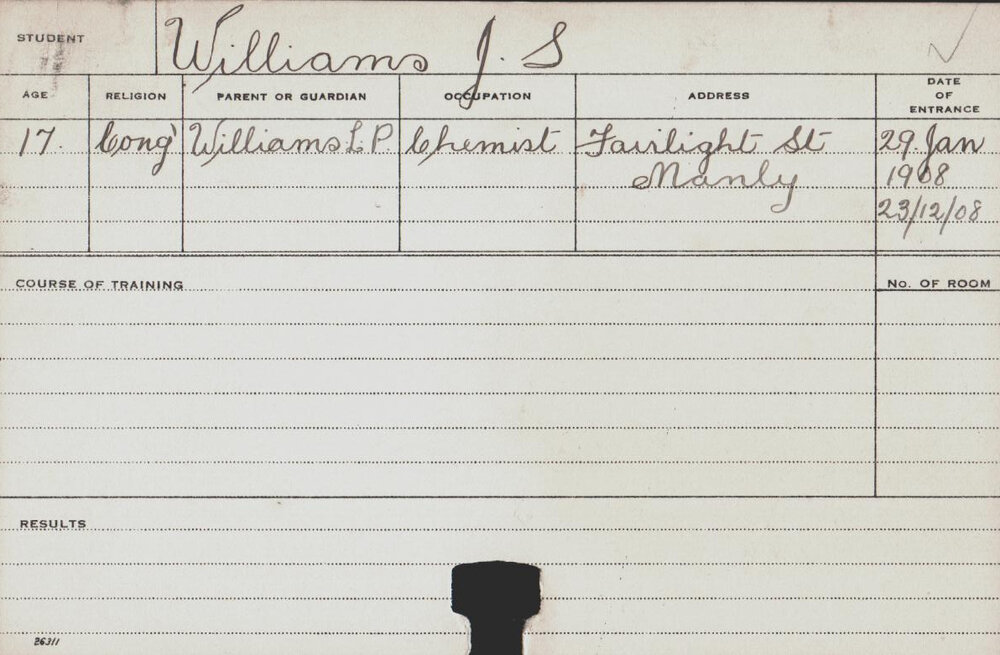 STUDENT Williams J. S
AGE RELIGION PARENT OR GUARDIAN OCCUPATION ADDRESS DATE OF ENTRANCE
17. Cong' Williams L P Chemist Fairlight St 29. Jan
Manly 1908
23/12/08
COURSE OF TRAINING No. OF ROOM
RESULTS
26311